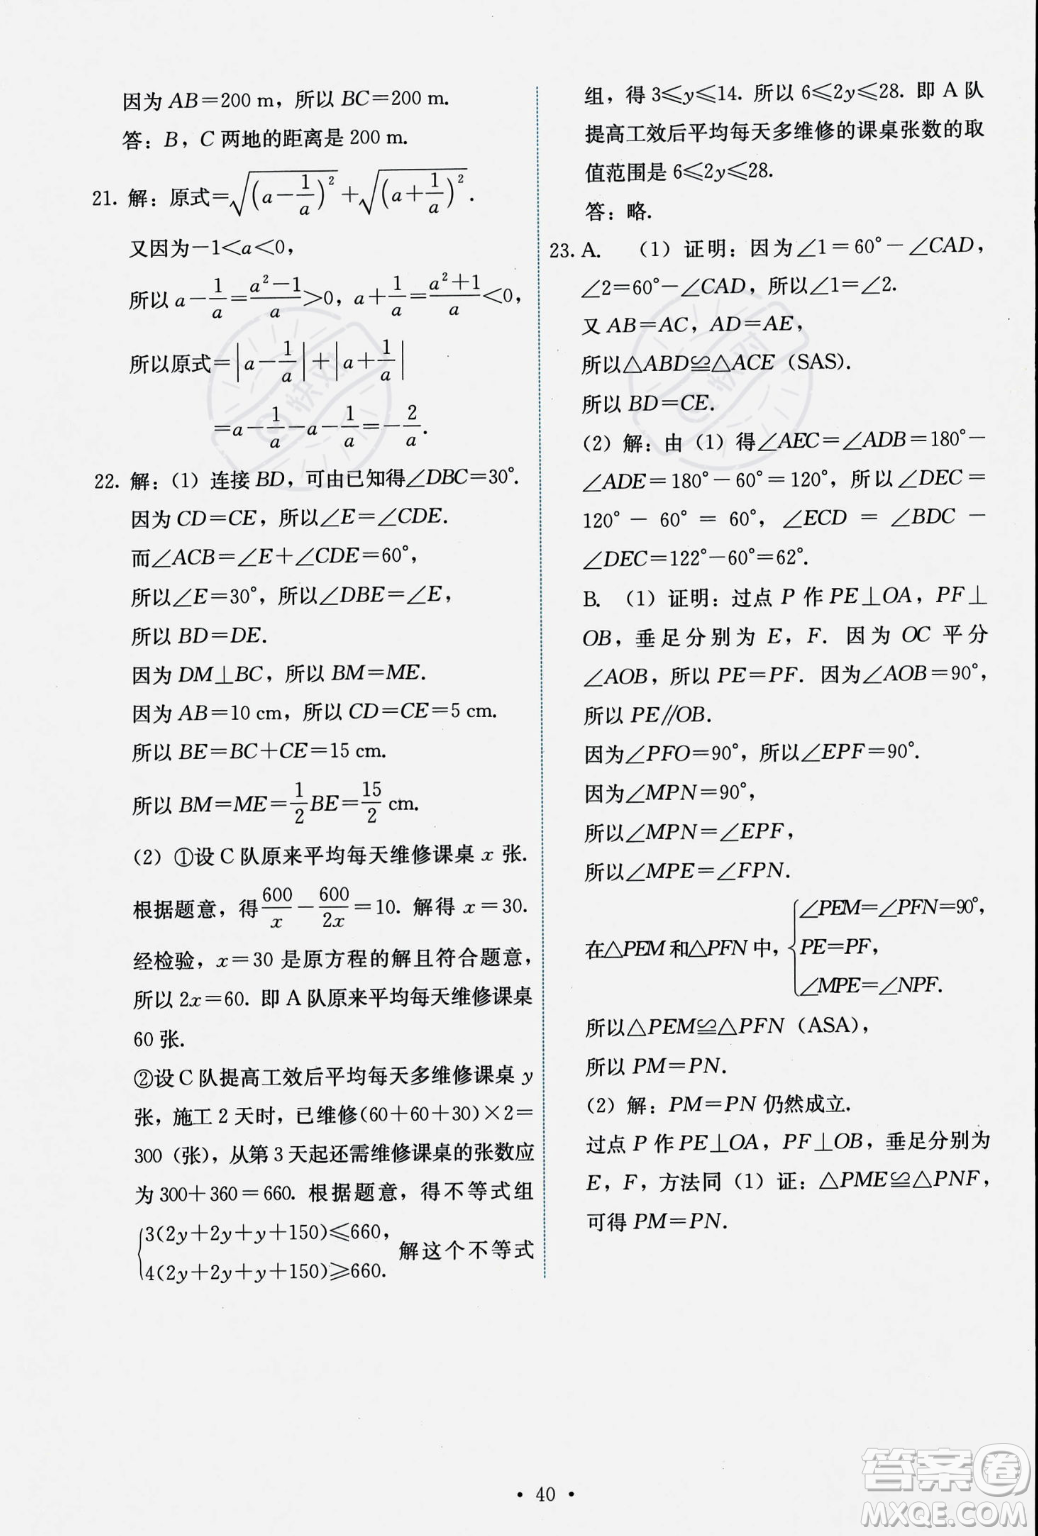 因为 AB=200 m，所以 BC=200 m.
答：B，C 两地的距离是 200 m.
21. 解：原式=√(a-1/a)²+√(a+1/a)².
又因为-1<a<0，
所以 a-1/a=(a²-1)/a>0，a+1/a=(a²+1)/a<0，
所以原式=|a-1/a|+|a+1/a|
=a-1/a-a-1/a=-2/a.
22. 解：(1) 连接 BD，可由已知得∠DBC=30°.
因为 CD=CE，所以∠E=∠CDE.
而∠ACB=∠E+∠CDE=60°，
所以∠E=30°，所以∠DBE=∠E，
所以 BD=DE.
因为 DM⊥BC，所以 BM=ME.
因为 AB=10 cm，所以 CD=CE=5 cm.
所以 BE=BC+CE=15 cm.
所以 BM=ME=1/2 BE=15/2 cm.
(2) ①设 C 队原来平均每天维修课桌 x 张.
根据题意，得 600/x - 600/2x =10. 解得 x=30.
经检验，x=30 是原方程的解且符合题意，
所以 2x=60. 即 A 队原来平均每天维修课桌
60 张.
②设 C 队提高工效后平均每天多维修课桌 y
张，施工 2 天时，已维修(60+60+30)×2=
300（张），从第 3 天起还需维修课桌的张数应
为 300+360=660. 根据题意，得不等式组
{3(2y+2y+y+150)≤660，
4(2y+2y+y+150)≥660. 解这个不等式
组，得 3≤y≤14. 所以 6≤2y≤28. 即 A 队
提高工效后平均每天多维修的课桌张数的取
值范围是 6≤2y≤28.
答：略.
23. A. (1) 证明：因为∠1=60°-∠CAD，
∠2=60°-∠CAD，所以∠1=∠2.
又 AB=AC，AD=AE，
所以△ABD≌△ACE (SAS).
所以 BD=CE.
(2) 解：由 (1) 得∠AEC=∠ADB=180°-
∠ADE=180°-60°=120°，所以∠DEC=
120°-60°=60°，∠ECD=∠BDC-
∠DEC=122°-60°=62°.
B. (1) 证明：过点 P 作 PE⊥OA，PF⊥
OB，垂足分别为 E，F. 因为 OC 平分
∠AOB，所以 PE=PF. 因为∠AOB=90°，
所以 PE∥OB.
因为∠PFO=90°，所以∠EPF=90°.
因为∠MPN=90°，
所以∠MPN=∠EPF，
所以∠MPE=∠FPN.
在△PEM 和△PFN 中，{∠PEM=∠PFN=90°，
PE=PF，
∠MPE=∠NPF.
所以△PEM≌△PFN (ASA)，
所以 PM=PN.
(2) 解：PM=PN 仍然成立.
过点 P 作 PE⊥OA，PF⊥OB，垂足分别为
E，F，方法同 (1) 证：△PME≌△PNF，
可得 PM=PN.
• 40 •
答案圈
MXQE.COM